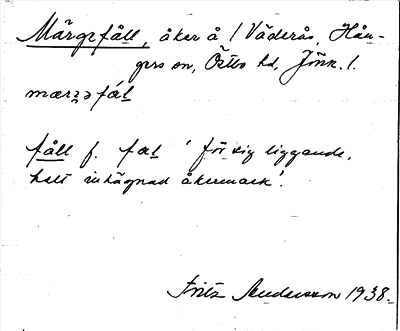 Märgsfåll, åker å 1 Väderås, Hån-
gers sn, Östbo hd, Jönk. l.
mærsə
fåll f. 'för sig liggande,
helt inhägnad åkermark'.
Fritz Andersson 1938.